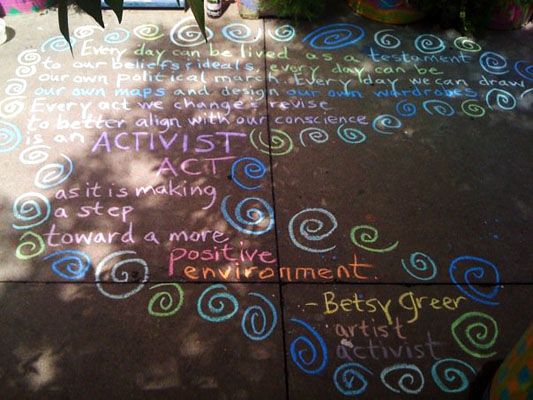 Every day can be lived as a testament
to our beliefs & ideals, every day can be
our own political march. Every day we can draw
our own maps and design our own wardrobes
Every act we change & revise
to better align with our conscience
is an ACTIVIST
ACT
as it is making
a step
toward a more
positive
environment.
- Betsy Greer
artist
activist